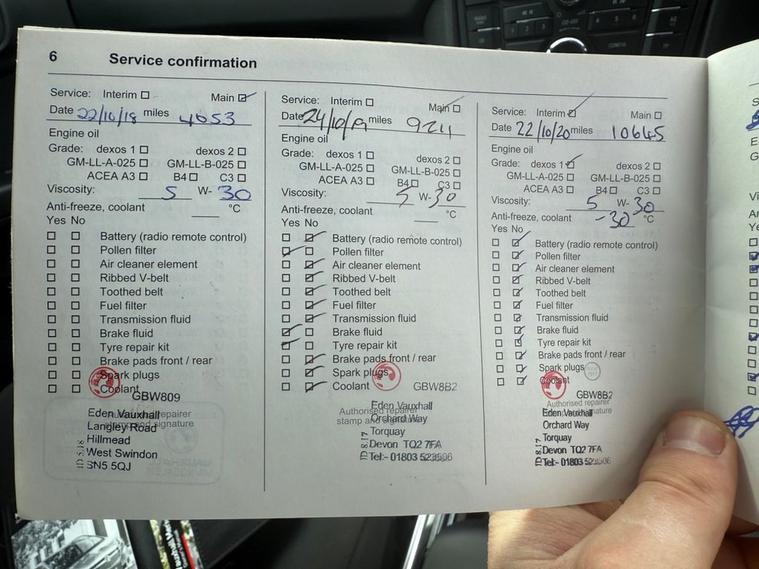 6 Service confirmation
Service: Interim ☐ Main ☑
Date 22/10/18 miles 4053
Engine oil
Grade: dexos 1 ☐ dexos 2 ☐
GM-LL-A-025 ☐ GM-LL-B-025 ☐
ACEA A3 ☐ B4 ☐ C3 ☐
Viscosity: 5 W- 30
Anti-freeze, coolant °C
Yes No
☐ ☐ Battery (radio remote control)
☐ ☐ Pollen filter
☐ ☐ Air cleaner element
☐ ☐ Ribbed V-belt
☐ ☐ Toothed belt
☐ ☐ Fuel filter
☐ ☐ Transmission fluid
☐ ☐ Brake fluid
☐ ☐ Tyre repair kit
☐ ☐ Brake pads front / rear
☐ ☐ Spark plugs
☐ ☐ Coolant
GBW809
Eden Vauxhall
Langley Road
Hillmead
West Swindon
SN5 5QJ
Service: Interim ☐ Main ☑
Date 24/10/19 miles 9211
Engine oil
Grade: dexos 1 ☐ dexos 2 ☐
GM-LL-A-025 ☐ GM-LL-B-025 ☐
ACEA A3 ☐ B4 ☐ C3 ☐
Viscosity: 5 W- 30
Anti-freeze, coolant °C
Yes No
☐ ☑ Battery (radio remote control)
☑ ☐ Pollen filter
☐ ☑ Air cleaner element
☐ ☑ Ribbed V-belt
☐ ☑ Toothed belt
☐ ☑ Fuel filter
☐ ☑ Transmission fluid
☑ ☐ Brake fluid
☑ ☐ Tyre repair kit
☐ ☑ Brake pads front / rear
☐ ☑ Spark plugs
☐ ☑ Coolant GBW8B2
Authorised repairer
stamp and signature
Eden Vauxhall
Orchard Way
Torquay
Devon TQ2 7FA
Tel:- 01803
Service: Interim ☑ Main ☐
Date 22/10/20 miles 10645
Engine oil
Grade: dexos 1 ☑ dexos 2 ☐
GM-LL-A-025 ☐ GM-LL-B-025 ☐
ACEA A3 ☐ B4 ☐ C3 ☐
Viscosity: 5 W- 30
Anti-freeze, coolant -30 °C
Yes No
☐ ☑ Battery (radio remote control)
☐ ☑ Pollen filter
☐ ☑ Air cleaner element
☐ ☑ Ribbed V-belt
☐ ☑ Toothed belt
☐ ☑ Fuel filter
☐ ☑ Transmission fluid
☐ ☑ Brake fluid
☐ ☑ Tyre repair kit
☐ ☑ Brake pads front / rear
☐ ☑ Spark plugs
☐ ☑ Coolant
GBW8B2
Authorised repairer
Eden Vauxhall
Orchard Way
Torquay
Devon TQ2 7FA
Tel:- 01803